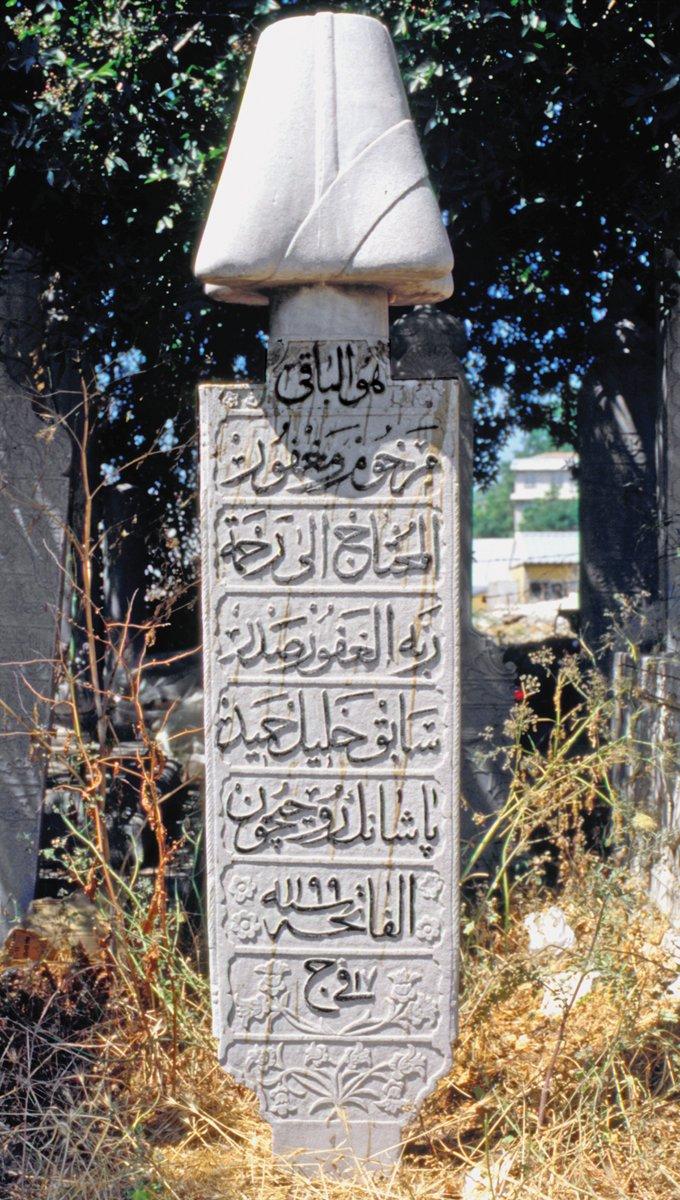 هو الباقی
مرحوم و مغفور
المحتاج الی رحمة
ربه الغفور صدر
سابق خلیل حمید
پاشانك روحیچون
الفاتحه سنه ١١٩٩
١٧ ج